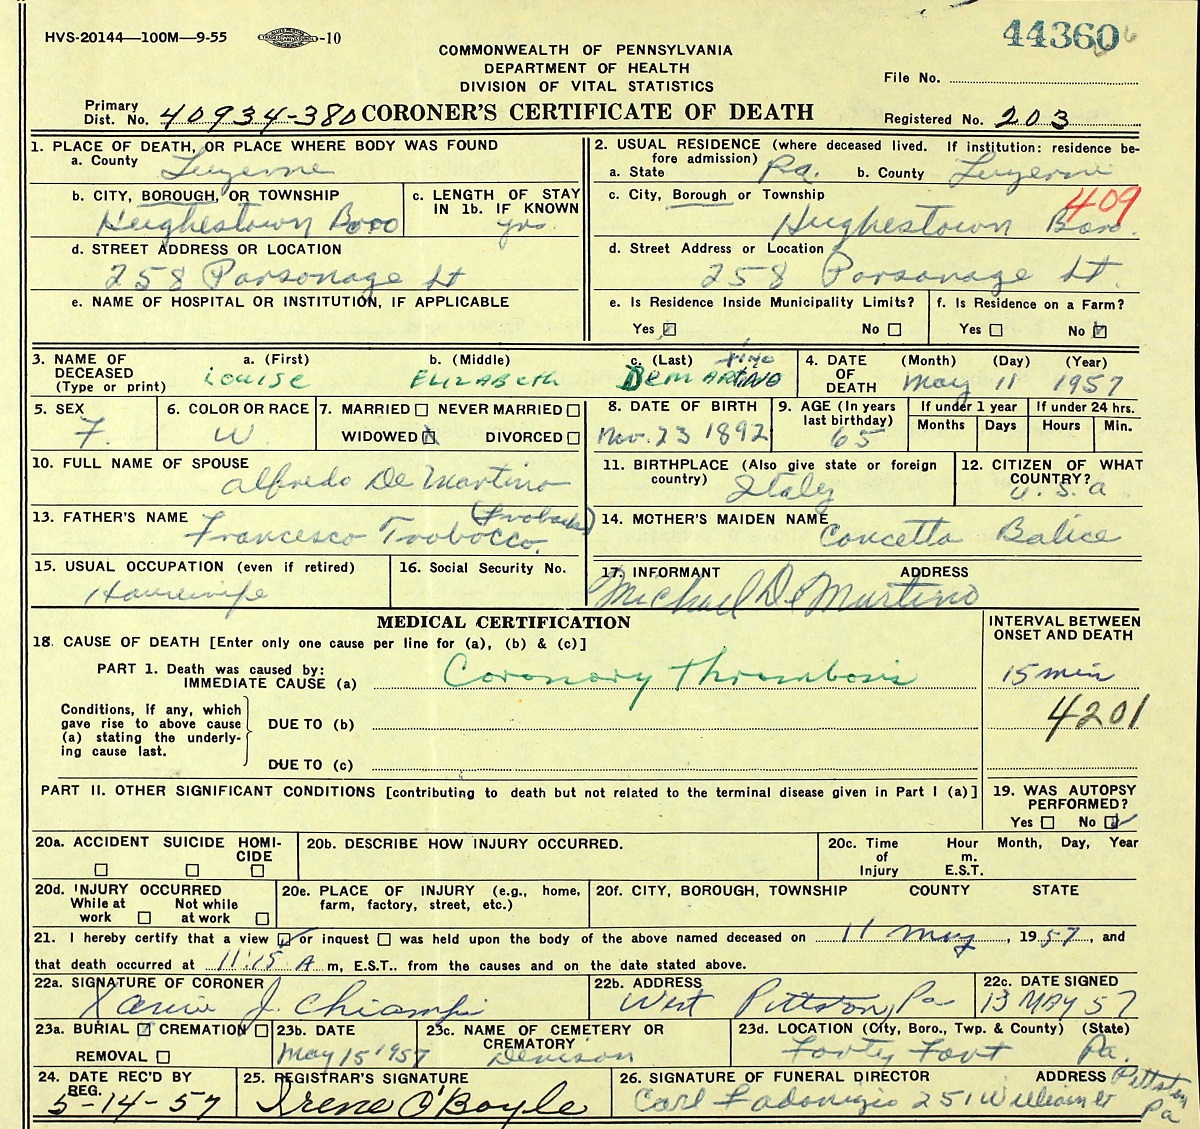 HVS-20144—100M—9-55 -10
44360
COMMONWEALTH OF PENNSYLVANIA
DEPARTMENT OF HEALTH
DIVISION OF VITAL STATISTICS
File No.
Primary Dist. No. 40934-380 CORONER'S CERTIFICATE OF DEATH Registered No. 203
1. PLACE OF DEATH, OR PLACE WHERE BODY WAS FOUND
a. County Luzerne
b. CITY, BOROUGH, OR TOWNSHIP Hughestown Boro
c. LENGTH OF STAY IN 1b. IF KNOWN yrs
d. STREET ADDRESS OR LOCATION
258 Parsonage St
e. NAME OF HOSPITAL OR INSTITUTION, IF APPLICABLE
2. USUAL RESIDENCE (where deceased lived. If institution: residence before admission)
a. State Pa. b. County Luzerne
c. City, Borough or Township 409
Hughestown Boro.
d. Street Address or Location
258 Parsonage St.
e. Is Residence Inside Municipality Limits? Yes No
f. Is Residence on a Farm? Yes No
3. NAME OF DECEASED (Type or print) a. (First) Louise b. (Middle) Elizabeth c. (Last) DeMartino tino
4. DATE OF DEATH (Month) (Day) (Year) May 11 1957
5. SEX F.
6. COLOR OR RACE W.
7. MARRIED NEVER MARRIED
WIDOWED DIVORCED
8. DATE OF BIRTH Nov. 23 1892
9. AGE (In years last birthday) 65
If under 1 year Months Days
If under 24 hrs. Hours Min.
10. FULL NAME OF SPOUSE Alfredo De Martino
11. BIRTHPLACE (Also give state or foreign country) Italy
12. CITIZEN OF WHAT COUNTRY? U.S.A
13. FATHER'S NAME Francesco Trobocco.
14. MOTHER'S MAIDEN NAME Concetta Balice
15. USUAL OCCUPATION (even if retired) Housewife
16. Social Security No.
17. INFORMANT ADDRESS
Michael De Martino
MEDICAL CERTIFICATION
INTERVAL BETWEEN ONSET AND DEATH
18. CAUSE OF DEATH [Enter only one cause per line for (a), (b) & (c)]
PART 1. Death was caused by:
IMMEDIATE CAUSE (a) Coronary Thrombosis 15 min
Conditions, if any, which gave rise to above cause (a) stating the underlying cause last.
DUE TO (b) 4201
DUE TO (c)
PART II. OTHER SIGNIFICANT CONDITIONS [contributing to death but not related to the terminal disease given in Part I (a)]
19. WAS AUTOPSY PERFORMED?
Yes No
20a. ACCIDENT SUICIDE HOMICIDE
20b. DESCRIBE HOW INJURY OCCURRED.
20c. Time of Injury Hour m. E.S.T. Month, Day, Year
20d. INJURY OCCURRED
While at work Not while at work
20e. PLACE OF INJURY (e.g., home, farm, factory, street, etc.)
20f. CITY, BOROUGH, TOWNSHIP COUNTY STATE
21. I hereby certify that a view or inquest was held upon the body of the above named deceased on 11 May, 1957, and
that death occurred at 11:15 A m, E.S.T.. from the causes and on the date stated above.
22a. SIGNATURE OF CORONER J. Chiampi
22b. ADDRESS West Pittston, Pa
22c. DATE SIGNED 13 MAY 57
23a. BURIAL CREMATION
REMOVAL
23b. DATE May 15 1957
23c. NAME OF CEMETERY OR CREMATORY Denison
23d. LOCATION (City, Boro., Twp. & County) (State)
Forty Fort Pa.
24. DATE REC'D BY REG. 5-14-57
25. REGISTRAR'S SIGNATURE Irene O'Boyle
26. SIGNATURE OF FUNERAL DIRECTOR ADDRESS Pittston Pa
Carl 251 William St